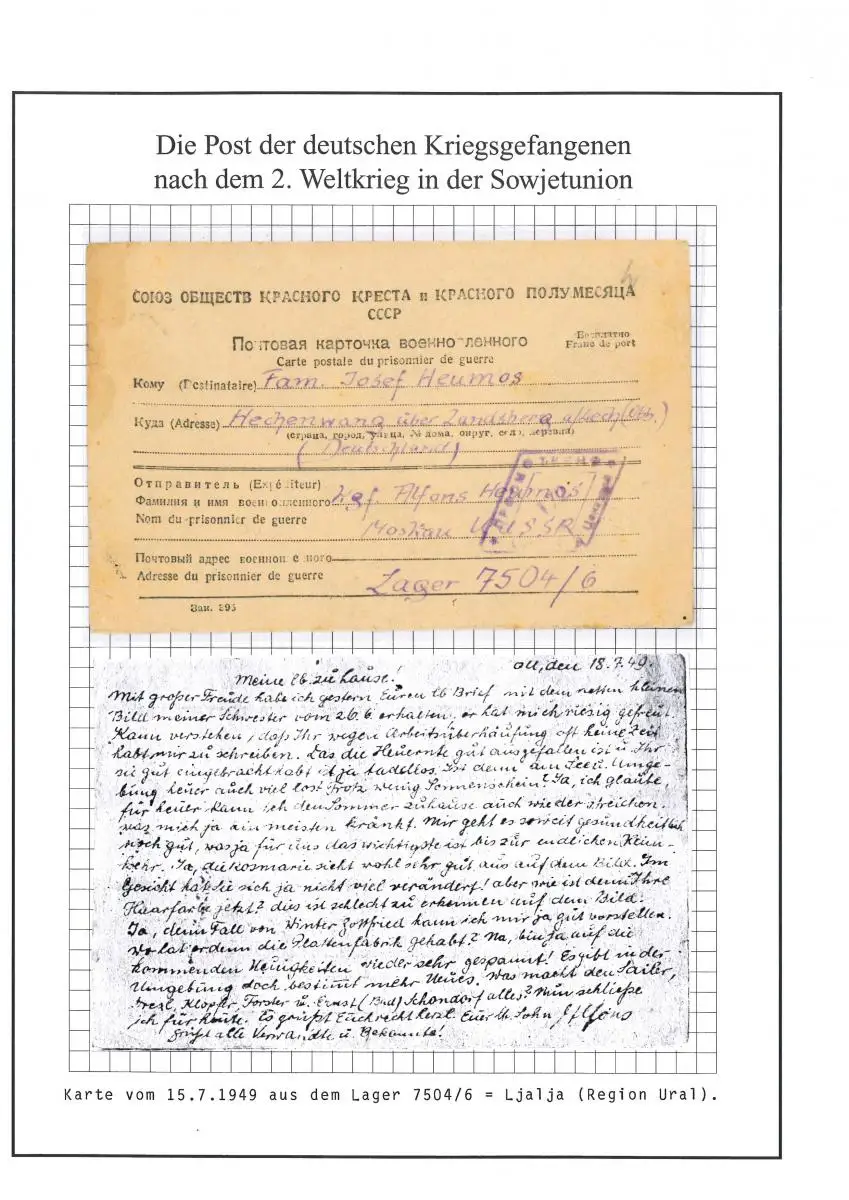 Die Post der deutschen Kriegsgefangenen
nach dem 2. Weltkrieg in der Sowjetunion
СОЮЗ ОБЩЕСТВ КРАСНОГО КРЕСТА и КРАСНОГО ПОЛУМЕСЯЦА
СССР
Почтовая карточка военнопленного
Carte postale du prisonnier de guerre
Бесплатно
Franc de port
Кому (Destinataire) Fam. Josef Heumos
Куда (Adresse) Hechenwang über Landsberg a/Lech (Obb.)
(страна, город, улица, № дома, округ, село, деревня)
(Deutschland)
Отправитель (Expéditeur)
Фамилия и имя военнопленного Alfons Heumos
Nom du prisonnier de guerre Moskau UdSSR
Почтовый адрес военнопленного
Adresse du prisonnier de guerre Lager 7504/6
Зак. 895
den 18.7.49.
Meine lb. zuhause!
Mit großer Freude habe ich gestern Euren lb Brief mit dem netten kleinen
Bild meiner Schwester vom 26.6. erhalten, er hat mich riesig gefreut.
Kann verstehen, daß Ihr wegen Arbeitsüberhäufung oft keine Zeit
habt mir zu schreiben. Das die Heuernte gut ausgefallen ist u. Ihr
sie gut eingebracht habt ist ja tadellos. Ist denn am See u. Umge-
bung heuer auch viel los trotz wenig Sonnenschein? Ja, ich glaube,
für heuer kann ich den Sommer zuhause auch wieder streichen.
was mich ja am meisten kränkt. Mir geht es soweit gesundheitlich
noch gut, was ja für uns das wichtigste ist bis zur endlichen Heim-
kehr. Ja, die Rosmarie sieht wohl sehr gut aus auf dem Bild. Im
Gesicht hat sie sich ja nicht viel verändert! aber wie ist denn Ihre
Haarfarbe jetzt? dies ist schlecht zu erkennen auf dem Bild.
Ja, denn Fall von Winter Gottfried kann ich mir ja gut vorstellen.
wo hat er denn die Plattenfabrik gehabt? Na, bin ja auf die
kommenden Neuigkeiten wieder sehr gespannt! Es gibt in der
Umgebung doch bestimmt mehr Neues. Was macht den Sailer,
Klopfer Forster u. Ernst (Bud) Schondorf alles? Nun schließe
ich für heute. Es grüßt Euch recht herzl. Euer lb. Sohn Alfons
Grüßt alle Verwandte u. Bekannte!
Karte vom 15.7.1949 aus dem Lager 7504/6 = Ljalja (Region Ural).